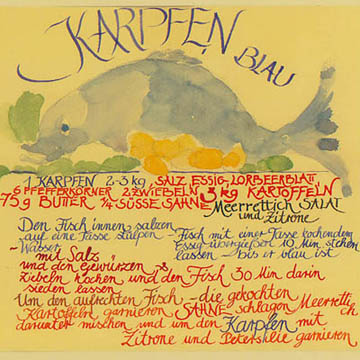 KARPFEN BLAU
1 KARPFEN 2-3 kg SALZ ESSIG LORBEERBLATT
6 PFEFFERKÖRNER 2 ZWIEBELN 3/4 kg KARTOFFELN
75g BUTTER 1/4 SÜSSE SAHNE Meerrettich SALAT
und Zitrone
Den Fisch innen salzen
auf eine Tasse stülpen - Fisch mit einer Tasse kochendem
Essig übergießen 10 Min stehen
lassen bis er blau ist
- Wasser
mit Salz
und den Gewürzen
Ziebeln kochen und den Fisch 30 Min darin
sieden lassen
Um den aufrechten Fisch - die gekochten
Kartoffeln garnieren SAHNE schlagen Meerrettich
darunter mischen und um den Karpfen mit
Zitrone und Petersilie garnieren